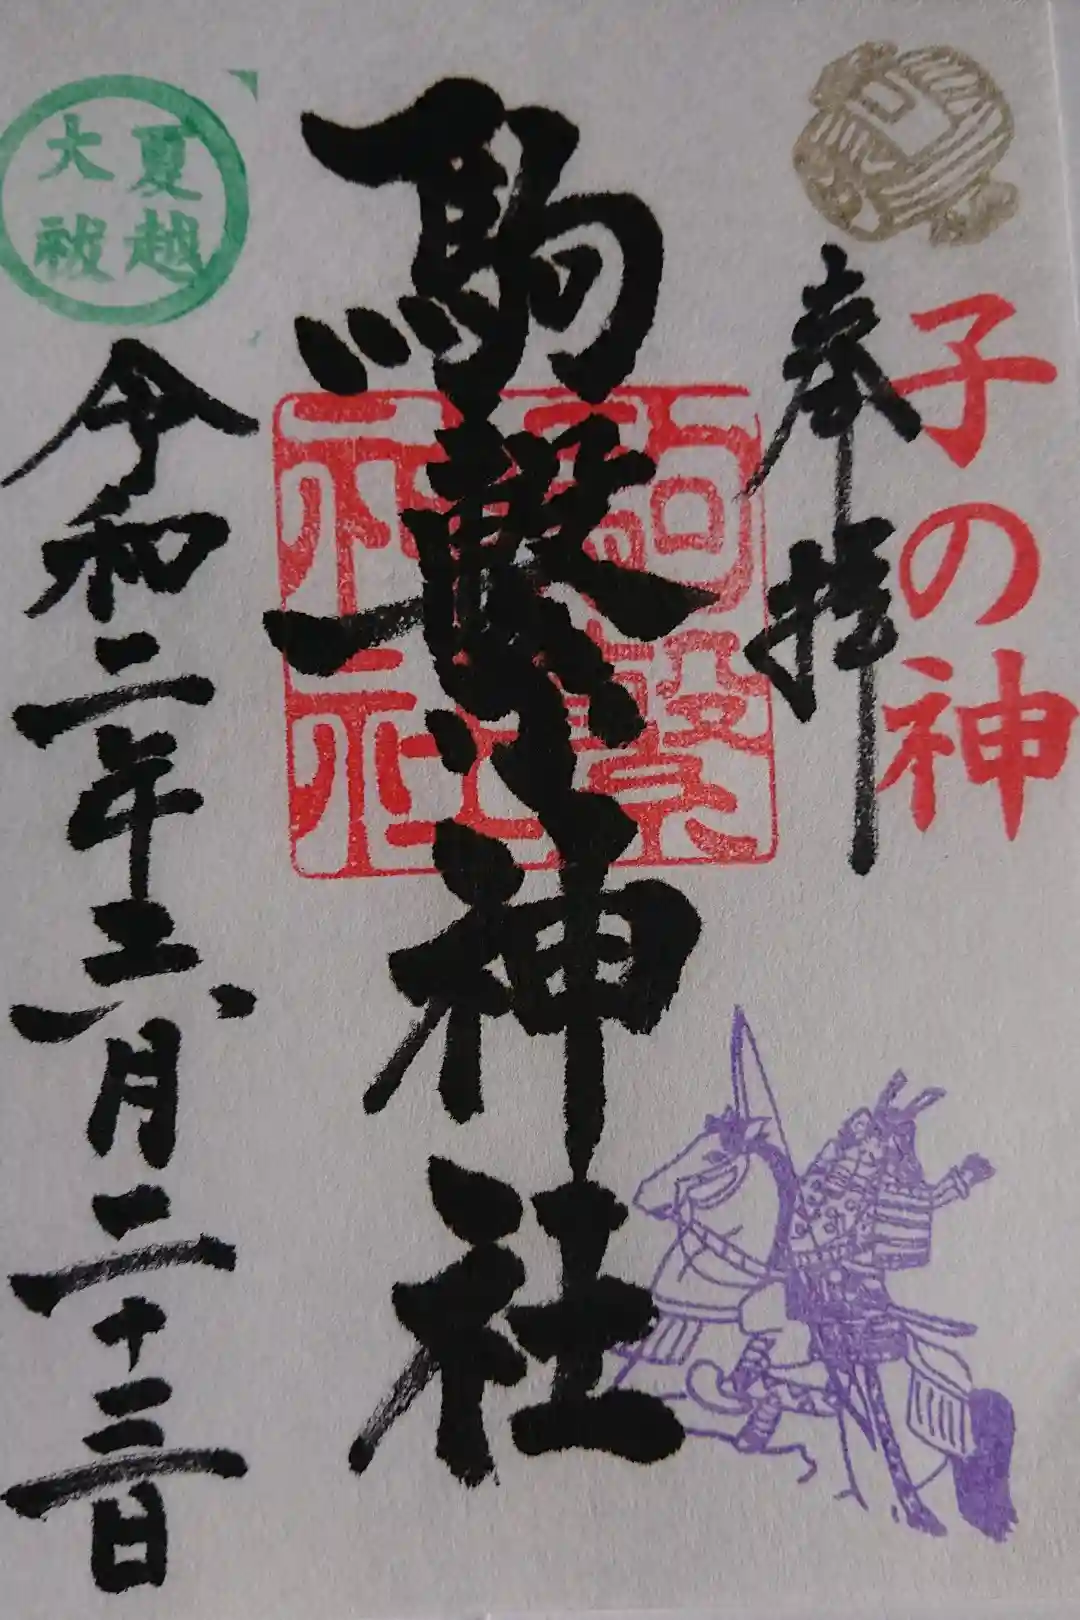 子の神
奉拝
駒繋神社
駒繋神社
夏越
大祓
令和二年六月二十三日